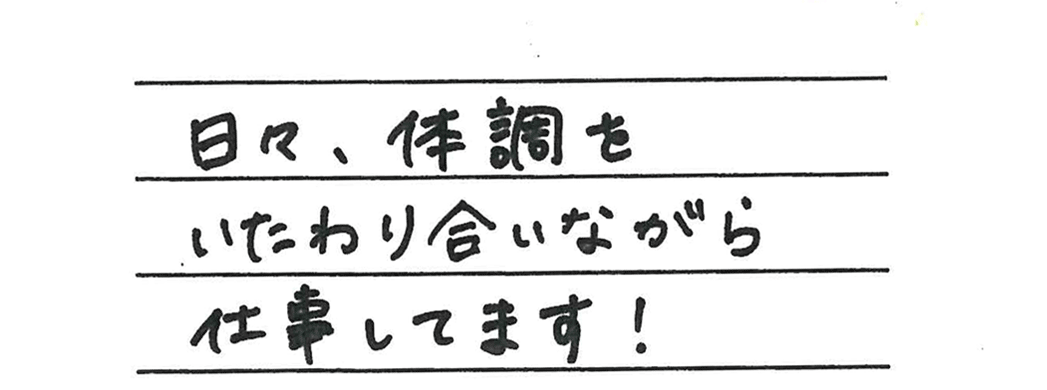 日々、体調を
いたわり合いながら
仕事してます!